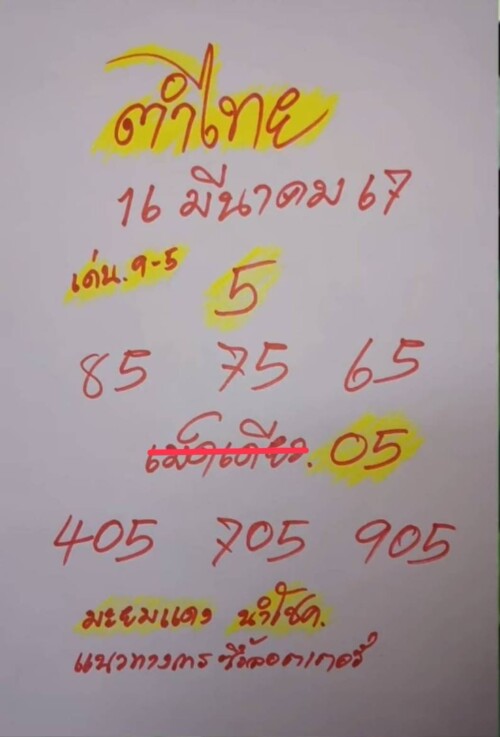 ตำไทย
16 มีนาคม 67
เด่น. 9-5
5
85 75 65
เม็ดเดียว. 05
405 705 905
มะยมแดง นำโชค.
แนวทางการซื้อลอตเตอรี่